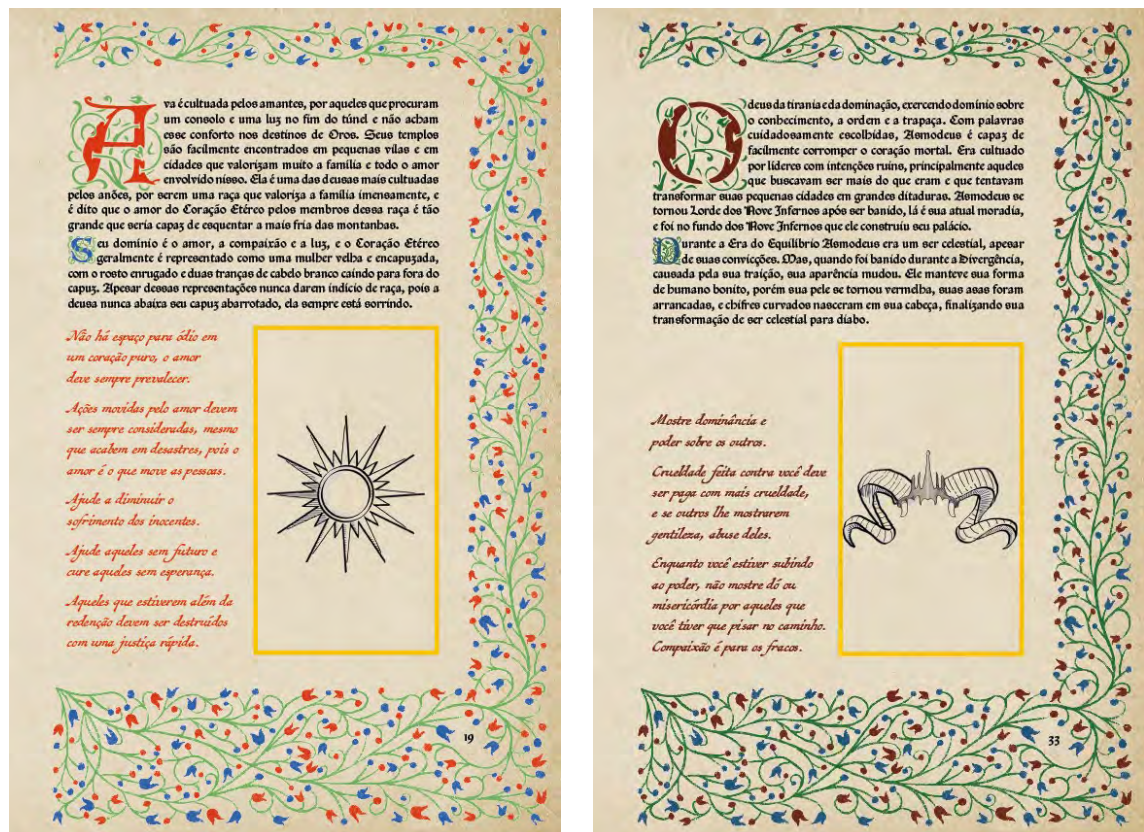 Ava é cultuada pelos amantes, por aqueles que procuram
um consolo e uma luz no fim do túnel e não acham
esse conforto nos destinos de Oros. Seus templos
são facilmente encontrados em pequenas vilas e em
cidades que valorizam muito a família e todo o amor
envolvido nisso. Ela é uma das deusas mais cultuadas
pelos anões, por serem uma raça que valoriza a família imensamente, e
é dito que o amor do Coração Etéreo pelos membros dessa raça é tão
grande que seria capaz de esquentar a mais fria das montanhas.
Seu domínio é o amor, a compaixão e a luz, e o Coração Etéreo
geralmente é representado como uma mulher velha e encapuzada,
com o rosto enrugado e duas tranças de cabelo branco caindo para fora do
capuz. Apesar dessas representações nunca darem indício de raça, pois a
deusa nunca abaixa seu capuz abarrotado, ela sempre está sorrindo.
Não há espaço para ódio em
um coração puro, o amor
deve sempre prevalecer.
Ações movidas pelo amor devem
ser sempre consideradas, mesmo
que acabem em desastres, pois o
amor é o que move as pessoas.
Ajude a diminuir o
sofrimento dos inocentes.
Ajude aqueles sem futuro e
cure aqueles sem esperança.
Aqueles que estiverem além da
redenção devem ser destruídos
com uma justiça rápida.
19
O deus da tirania e da dominação, exercendo domínio sobre
o conhecimento, a ordem e a trapaça. Com palavras
cuidadosamente escolhidas, Asmodeus é capaz de
facilmente corromper o coração mortal. Era cultuado
por líderes com intenções ruins, principalmente aqueles
que buscavam ser mais do que eram e que tentavam
transformar suas pequenas cidades em grandes ditaduras. Asmodeus se
tornou Lorde dos Nove Infernos após ser banido, lá é sua atual moradia,
e foi no fundo dos Nove Infernos que ele construiu seu palácio.
Durante a Era do Equilíbrio Asmodeus era um ser celestial, apesar
de suas convicções. Mas, quando foi banido durante a Divergência,
causada pela sua traição, sua aparência mudou. Ele manteve sua forma
de humano bonito, porém sua pele se tornou vermelha, suas asas foram
arrancadas, e chifres curvados nasceram em sua cabeça, finalizando sua
transformação de ser celestial para diabo.
Mostre dominância e
poder sobre os outros.
Crueldade feita contra você deve
ser paga com mais crueldade,
e se outros lhe mostrarem
gentileza, abuse deles.
Enquanto você estiver subindo
ao poder, não mostre dó ou
misericórdia por aqueles que
você tiver que pisar no caminho.
Compaixão é para os fracos.
33